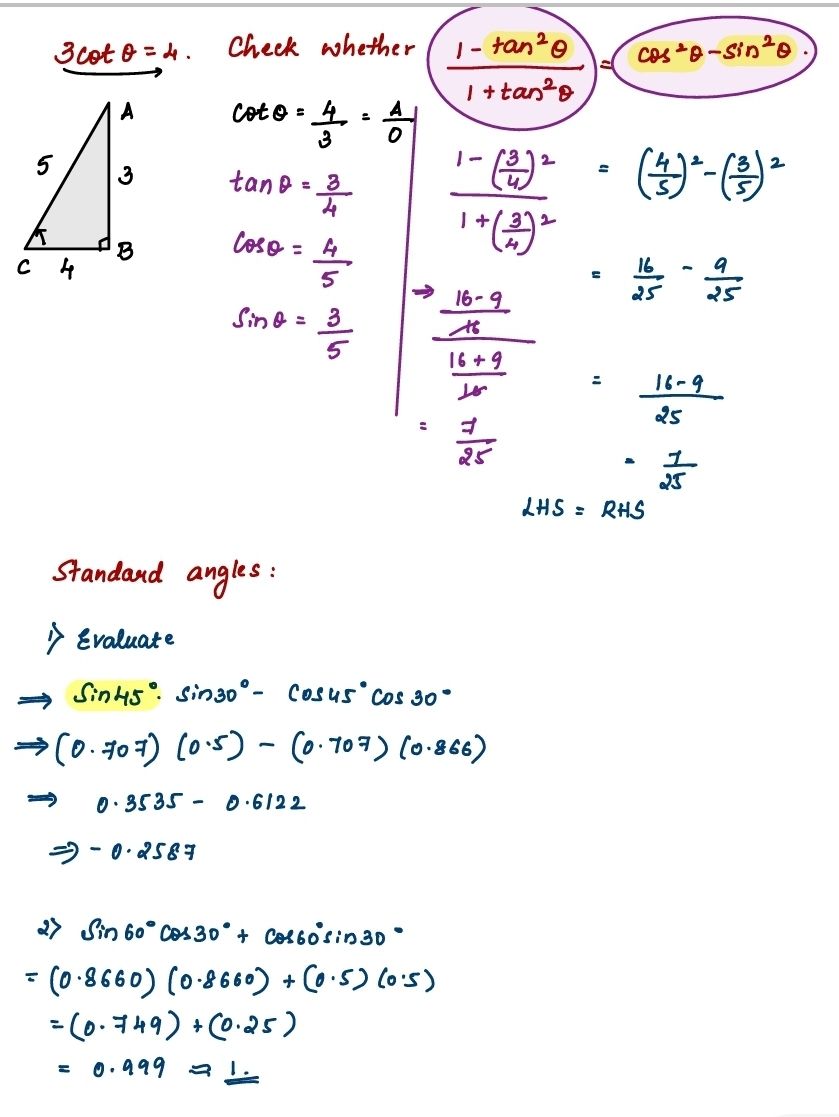 3cot θ = 4. Check whether (1 - tan²θ)/(1 + tan²θ) = cos²θ - sin²θ.
A
5
3
C 4 B
cot θ = 4/3 = A/O
tan θ = 3/4
Cos θ = 4/5
Sin θ = 3/5
(1 - (3/4)²)/(1 + (3/4)²)
⇒ ((16 - 9)/16)/((16 + 9)/16)
= 7/25
= (4/5)² - (3/5)²
= 16/25 - 9/25
= (16 - 9)/25
= 7/25
LHS = RHS
Standard angles:
1) Evaluate
⇒ Sin45°. Sin30° - Cos45° Cos30°
⇒ (0.707) (0.5) - (0.707) (0.866)
⇒ 0.3535 - 0.6122
⇒ - 0.2587
2) Sin60° Cos30° + Cos60° Sin30°
= (0.8660) (0.8660) + (0.5) (0.5)
= (0.749) + (0.25)
= 0.999 ≈ 1.